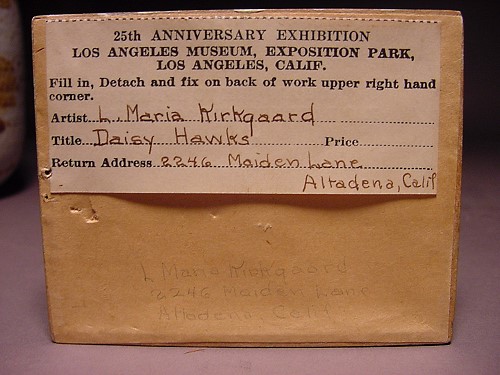 25th ANNIVERSARY EXHIBITION
LOS ANGELES MUSEUM, EXPOSITION PARK,
LOS ANGELES, CALIF.
Fill in, Detach and fix on back of work upper right hand
corner.
Artist L. Maria Kirkgaard
Title Daisy Hawks Price
Return Address 2246 Maiden Lane
Altadena, Calif
L Maria Kirkgaard
2246 Maiden Lane
Altadena, Calif